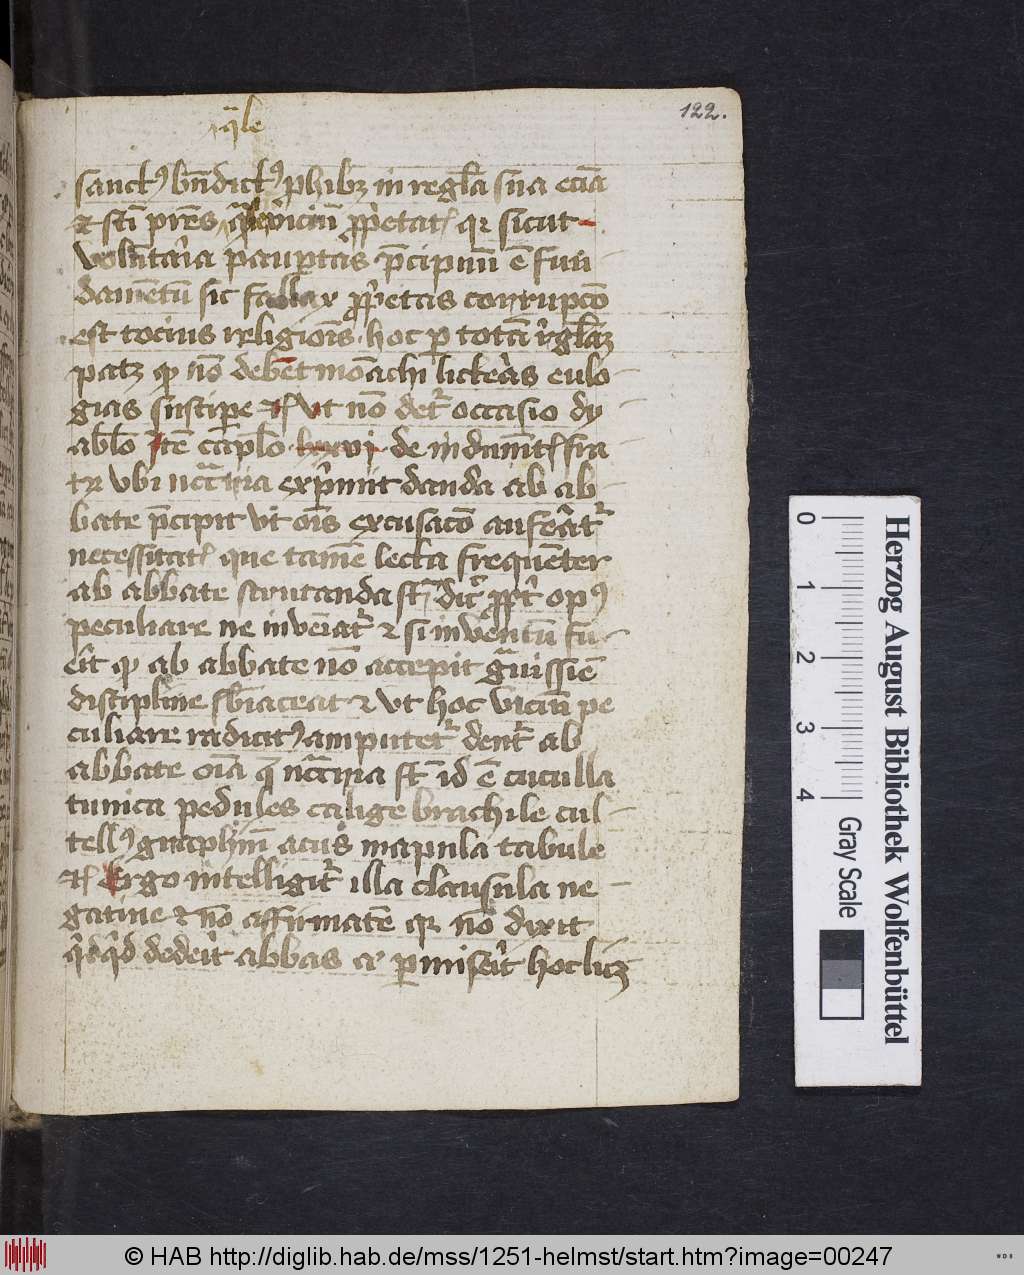 122.
q̄le
sanctꝰ bn̄dictꝰ ꝓhibꝫ in regl̄a sua eciā
⁊ sc̄i pr̄es viciū ꝓp̄etatꝭ qꝛ sicut
voluntar̄ia pauꝑtas p̄cipuū ē fun
damētū sic fallax ꝓp̄etas corrupcō
est tocius religiōis hoc ꝑ totā r̄gl̄aꝫ
patꝫ ꝙ nō debēt mōachi litter̄as eulo
gias suscipe ⁊ꝭ Vt nō det̄ occasio dy
abl̄o Itē cap̄lo lxxvi de indumētꝭ fra
tꝝ vbi nc̄ciaria exp̄mit danda ab ab
bate p̄cipit vt oīs excusacō aufeāt̄
necessitatꝭ que tamē lecta frequēter
ab abbate scrutanda sūt dic̄ ꝓpt̄ opꝰ
peculiare ne inveīat̄ ⁊ si inventū fu
eīt ꝙ ab abbate nō accepit ḡuissīe
discipline sb̄iaceat ⁊ vt hoc viciū pe
culiare radicitꝰ amputet̄ dent̄ ab
abbate oīa q̄ nc̄cīria st̄ id ē cuculla
tunica pedules calige brachile cul
tellꝰ graphiū acus mapula tabule
⁊ꝭ Ergo intelligit̄ illa clausula ne
gatiue ⁊ nō affirmatē qꝛ nō dyxit
q̄dq̄d dedeīt abbas aꝉ ꝑmiseīt hoc licꝫ
Herzog August Bibliothek Wolfenbüttel
0 1 2 3 4 Gray Scale
© HAB http://diglib.hab.de/mss/1251-helmst/start.htm?image=00247